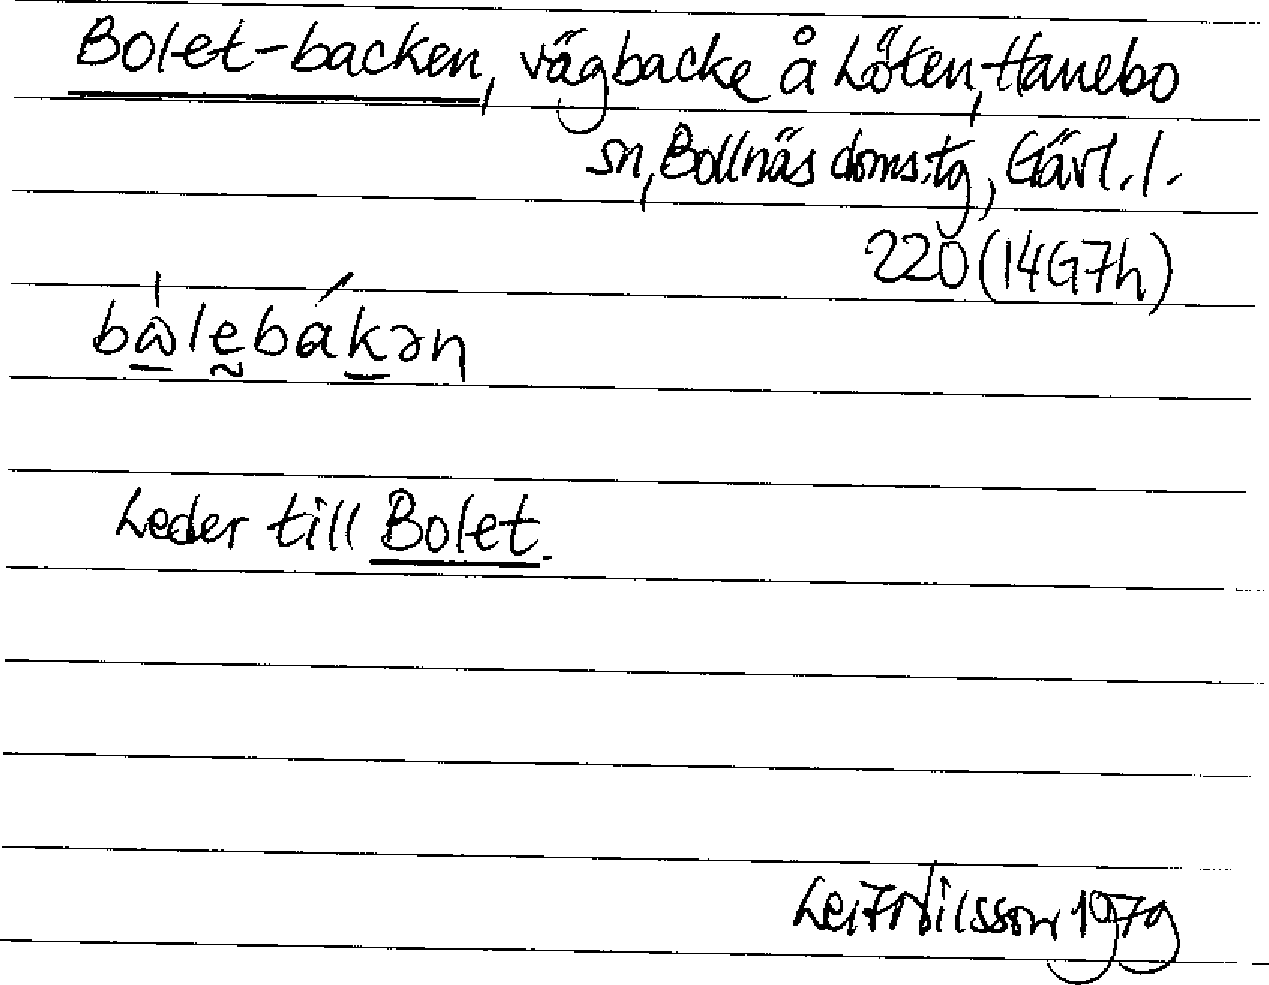 Bolet-backen, vägbacke å Löten, Hanebo
sn, Bollnäs doms.tg, Gävl. l.
220 (14G7h)
Leder till Bolet.
Leif Nilsson 1979